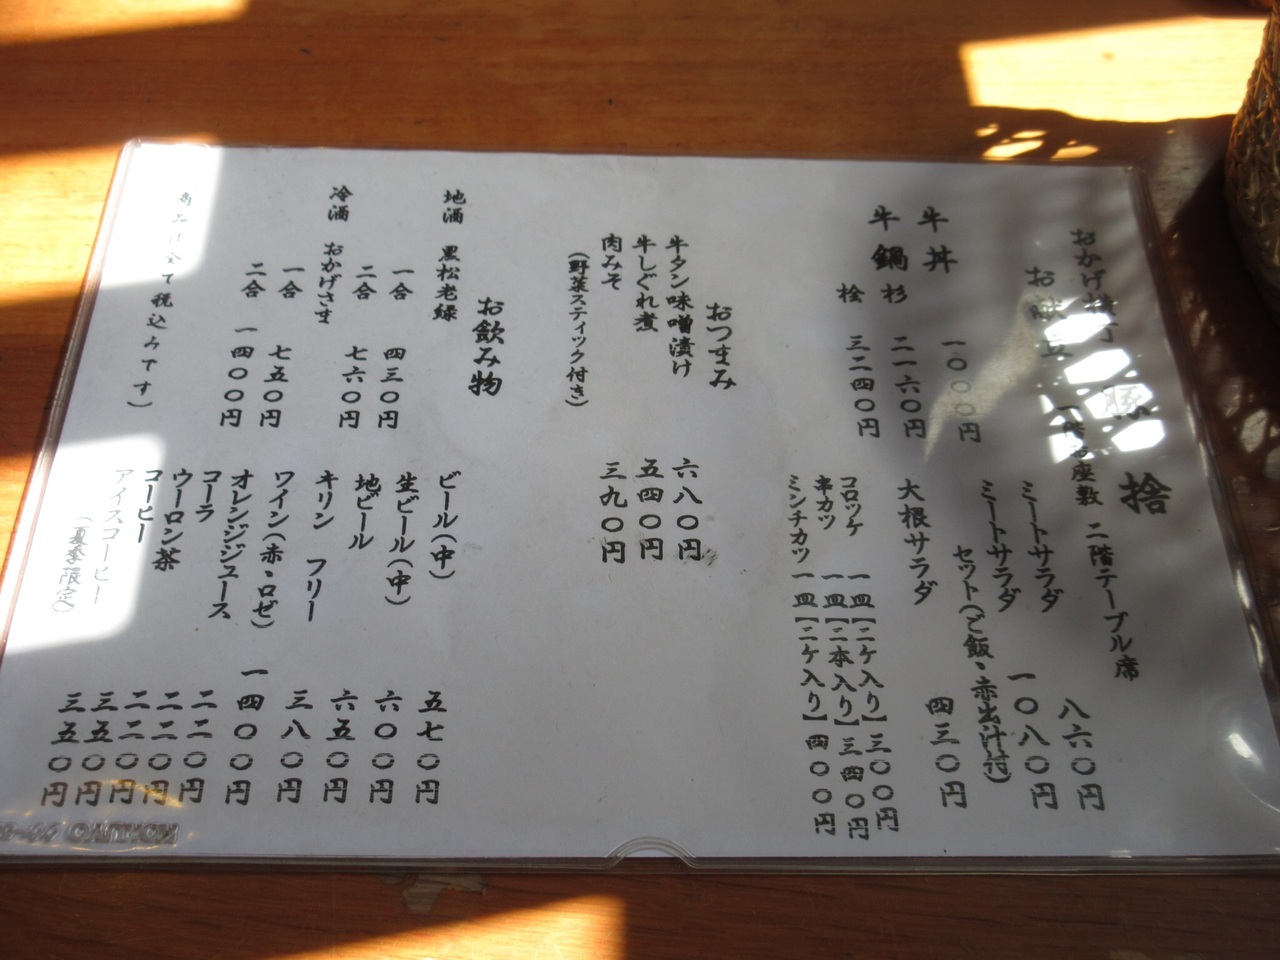 おかげ横丁 豚捨
お献立 一階お座敷 二階テーブル席
牛丼 一〇〇〇円
牛鍋 杉 二一六〇円
桧 三二四〇円
ミートサラダ 八六〇円
ミートサラダ
セット(ご飯・赤出汁付) 一〇八〇円
大根サラダ 四三〇円
コロッケ 一皿【二ケ入り】 三〇〇円
串カツ 一皿【二本入り】 三四〇円
ミンチカツ 一皿【二ケ入り】 四〇〇円
おつまみ
牛タン味噌漬け 六八〇円
牛しぐれ煮 五四〇円
肉みそ 三九〇円
(野菜スティック付き)
お飲み物
地酒 黒松老緑 一合 四三〇円
二合 七六〇円
冷酒 おかげさま 一合 七五〇円
二合 一四〇〇円
ビール(中) 五七〇円
生ビール(中) 六〇〇円
地ビール 六五〇円
キリン フリー 三八〇円
ワイン(赤・ロゼ) 一四〇〇円
オレンジジュース 二二〇円
コーラ 二二〇円
ウーロン茶 二二〇円
コーヒー 三五〇円
アイスコーヒー 三五〇円
(夏季限定)
商品は全て税込みです)